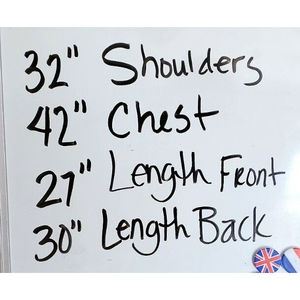 32" Shoulders
42" Chest
27" Length Front
30" Length Back